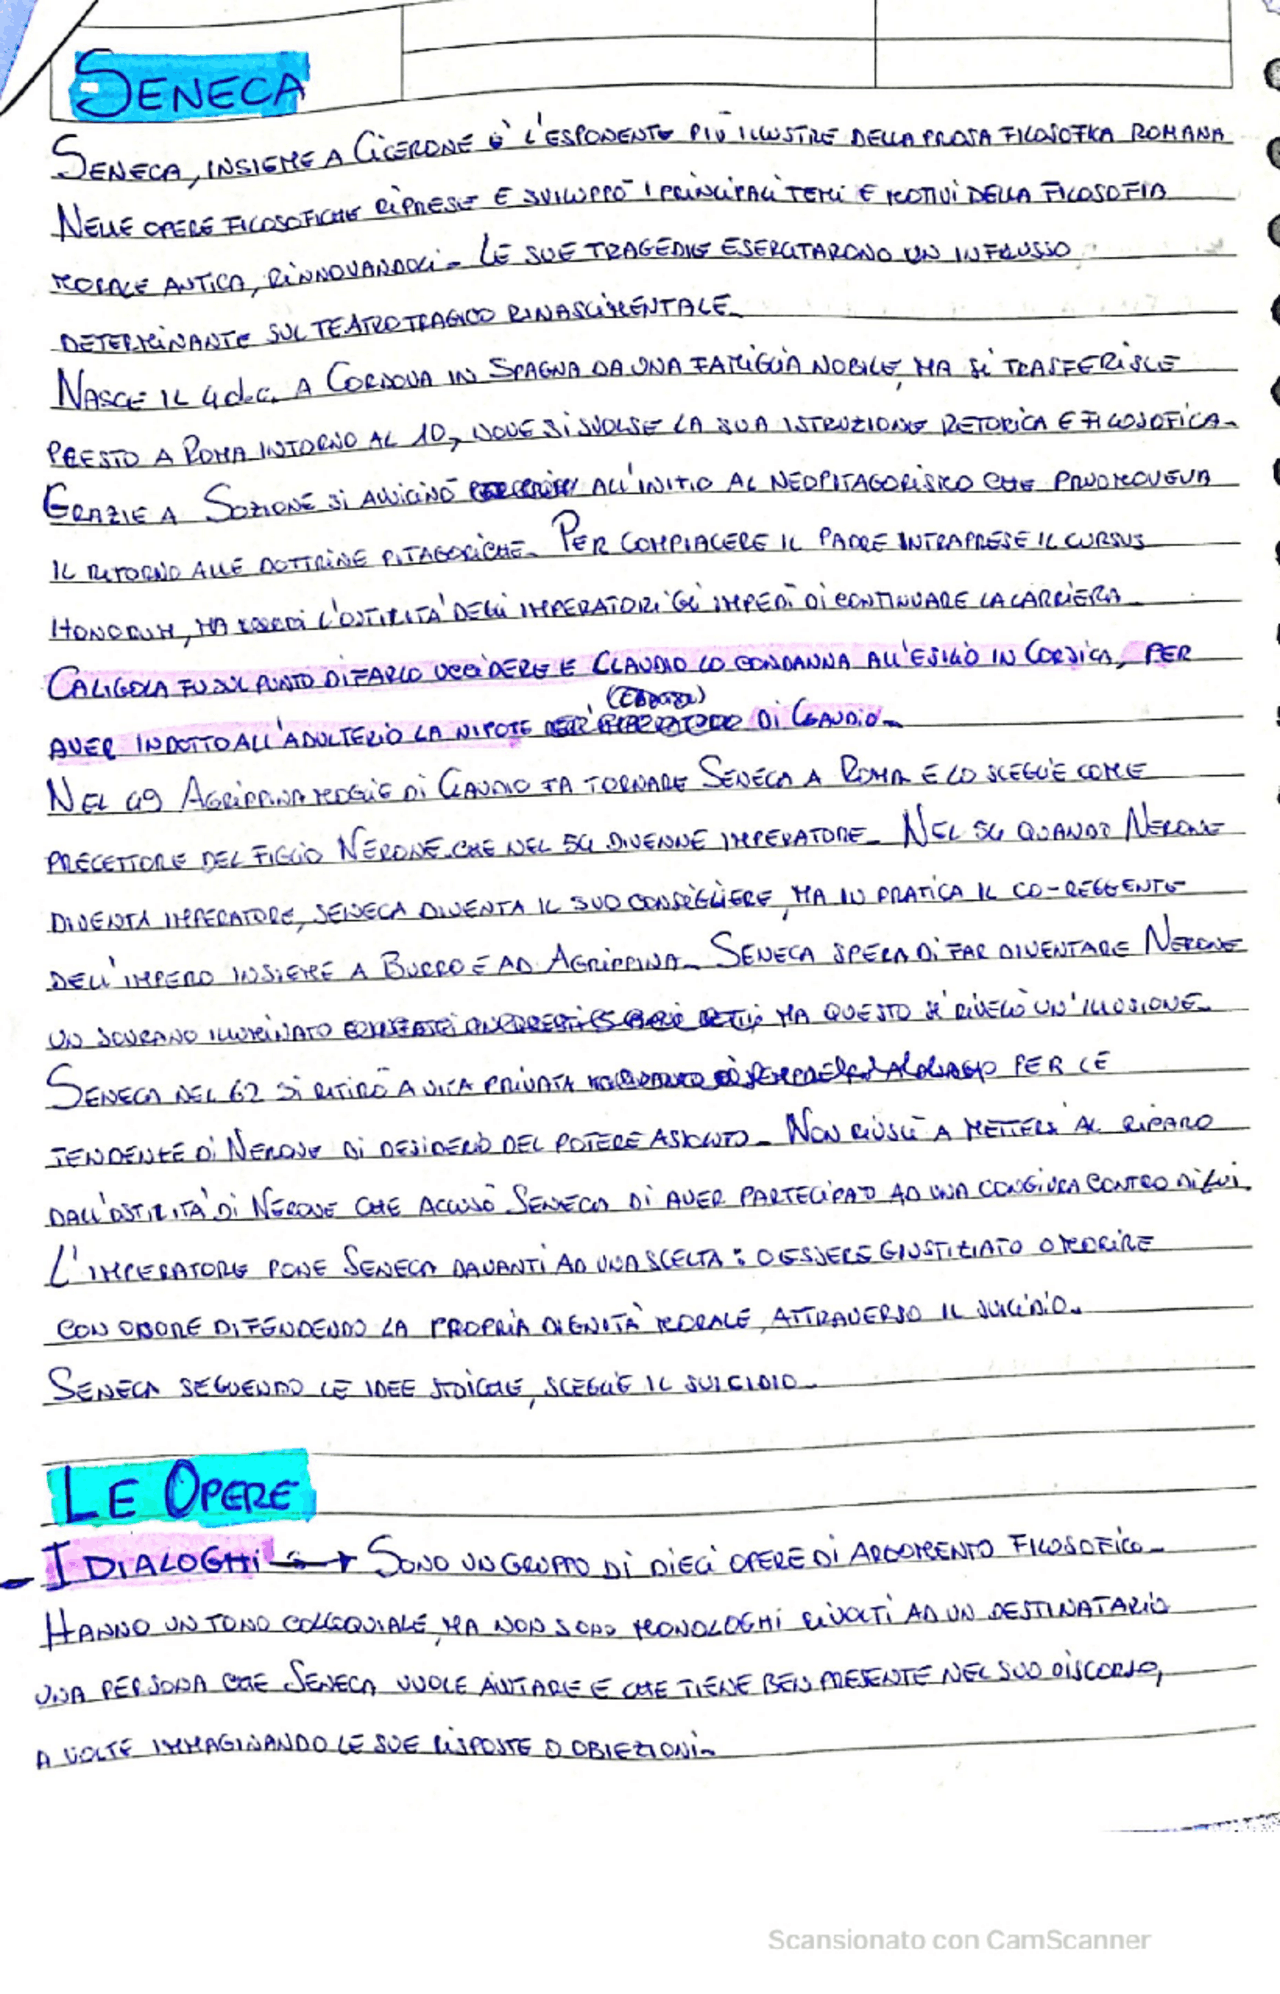 SENECA
SENECA, INSIEME A CICERONE È L'ESPONENTE PIÙ ILLUSTRE DELLA PROSA FILOSOFICA ROMANA
NELLE OPERE FILOSOFICHE RIPRESE E SVILUPPÒ I PRINCIPALI TEMI E MOTIVI DELLA FILOSOFIA
MORALE ANTICA, RINNOVANDOLI. LE SUE TRAGEDIE ESERCITARONO UN INFLUSSO
DETERMINANTE SUL TEATRO TRAGICO RINASCIMENTALE.
NASCE IL 4 d.C. A CORDOVA IN SPAGNA DA UNA FAMIGLIA NOBILE, MA SI TRASFERISCE
PRESTO A ROMA INTORNO AL 10, DOVE SI SVOLSE LA SUA ISTRUZIONE RETORICA E FILOSOFICA.
GRAZIE A SOZIONE SI AVVICINÒ ALL'INITIO AL NEOPITAGORISMO CHE PROMOVEVA
IL RITORNO ALLE DOTTRINE PITAGORICHE. PER COMPIACERE IL PADRE INTRAPRESE IL CURSUS
HONORUM, MA L'OSTILITÀ DEGLI IMPERATORI GLI IMPEDÌ DI CONTINUARE LA CARRIERA.
CALIGOLA FU SUL PUNTO DI FARLO UCCIDERE E CLAUDIO LO CONDANNA ALL'ESILIO IN CORSICA, PER
AVER INDOTTO ALL'ADULTERIO LA NIPOTE DI CLAUDIO.
NEL 49 AGRIPPINA MOGLIE DI CLAUDIO FA TORNARE SENECA A ROMA E LO SCEGLIE COME
PRECETTORE DEL FIGLIO NERONE. CHE NEL 54 DIVENNE IMPERATORE. NEL 54 QUANDO NERONE
DIVENTA IMPERATORE, SENECA DIVENTA IL SUO CONSIGLIERE, MA IN PRATICA IL CO-REGGENTE
DELL'IMPERO INSIEME A BURRO E AD AGRIPPINA. SENECA SPERA DI FAR DIVENTARE NERONE
UN SOVRANO ILLUMINATO MA QUESTO SI RIVELÒ UN'ILLUSIONE.
SENECA NEL 62 SI RITIRÒ A VITA PRIVATA PER LE
TENDENZE DI NERONE DI DESIDERIO DEL POTERE ASSOLUTO. NON RIUSCÌ A METTERSI AL RIPARO
DALL'OSTILITÀ DI NERONE CHE ACCUSÒ SENECA DI AVER PARTECIPATO AD UNA CONGIURA CONTRO DI LUI.
L'IMPERATORE PONE SENECA DAVANTI AD UNA SCELTA: O ESSERE GIUSTIZIATO O MORIRE
CON ONORE DIFENDENDO LA PROPRIA DIGNITÀ MORALE, ATTRAVERSO IL SUICIDIO.
SENECA SEGUENDO LE IDEE STOICHE, SCEGLIE IL SUICIDIO.
LE OPERE
- I DIALOGHI → SONO UN GRUPPO DI DIECI OPERE DI ARGOMENTO FILOSOFICO.
HANNO UN TONO COLLOQUIALE, MA NON SONO MONOLOGHI RIVOLTI AD UN DESTINATARIO
UNA PERSONA CHE SENECA VUOLE AIUTARE E CHE TIENE BEN PRESENTE NEL SUO DISCORSO,
A VOLTE IMMAGINANDO LE SUE RISPOSTE O OBIEZIONI.
Scansionato con CamScanner